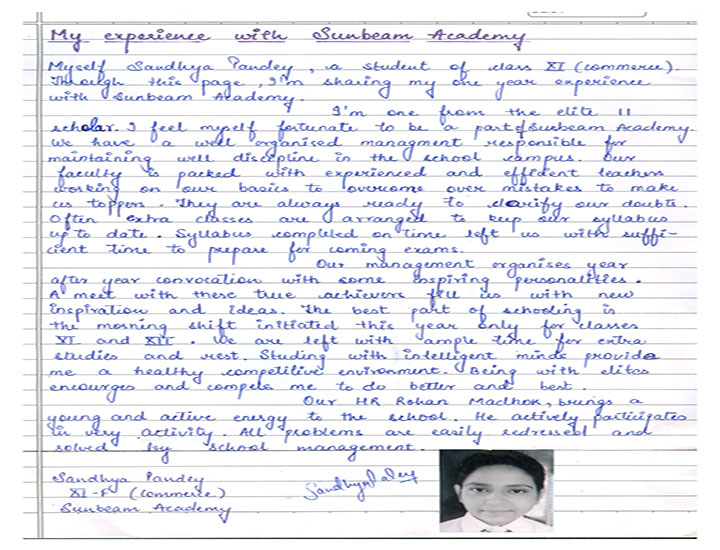 My experience with Sunbeam Academy
Myself Sandhya Pandey, a student of class XI (commerce).
Through this page, I'm sharing my one year experience
with Sunbeam Academy.
I'm one from the elite 11
scholar. I feel myself fortunate to be a part of Sunbeam Academy.
We have a well organised managment responsible for
maintaining well discipline in the school campus. Our
faculty is packed with experienced and efficient teachers
working on our basics to overcome over mistakes to make
us toppers. They are always ready to clarify our doubts.
Often extra classes are arranged to keep our syllabus
up to date. Syllabus completed on time left us with suffi-
cient time to prepare for coming exams.
Our management organises year
after year convocation with some inspiring personalities.
A meet with these true achievers fill us with new
inspiration and ideas. The best part of schooling is
the morning shift initiated this year only for classes
XI and XII. We are left with ample time for extra
studies and rest. Studing with intelligent minds provide
me a healthy competitive environment. Being with elites
encourges and compels me to do better and best.
Our HR Rohan Madhok, brings a
young and active energy to the school. He actively participates
in very activity. All problems are easily redressed and
solved by school management.
Sandhya Pandey
XI-F (Commerce)
Sunbeam Academy